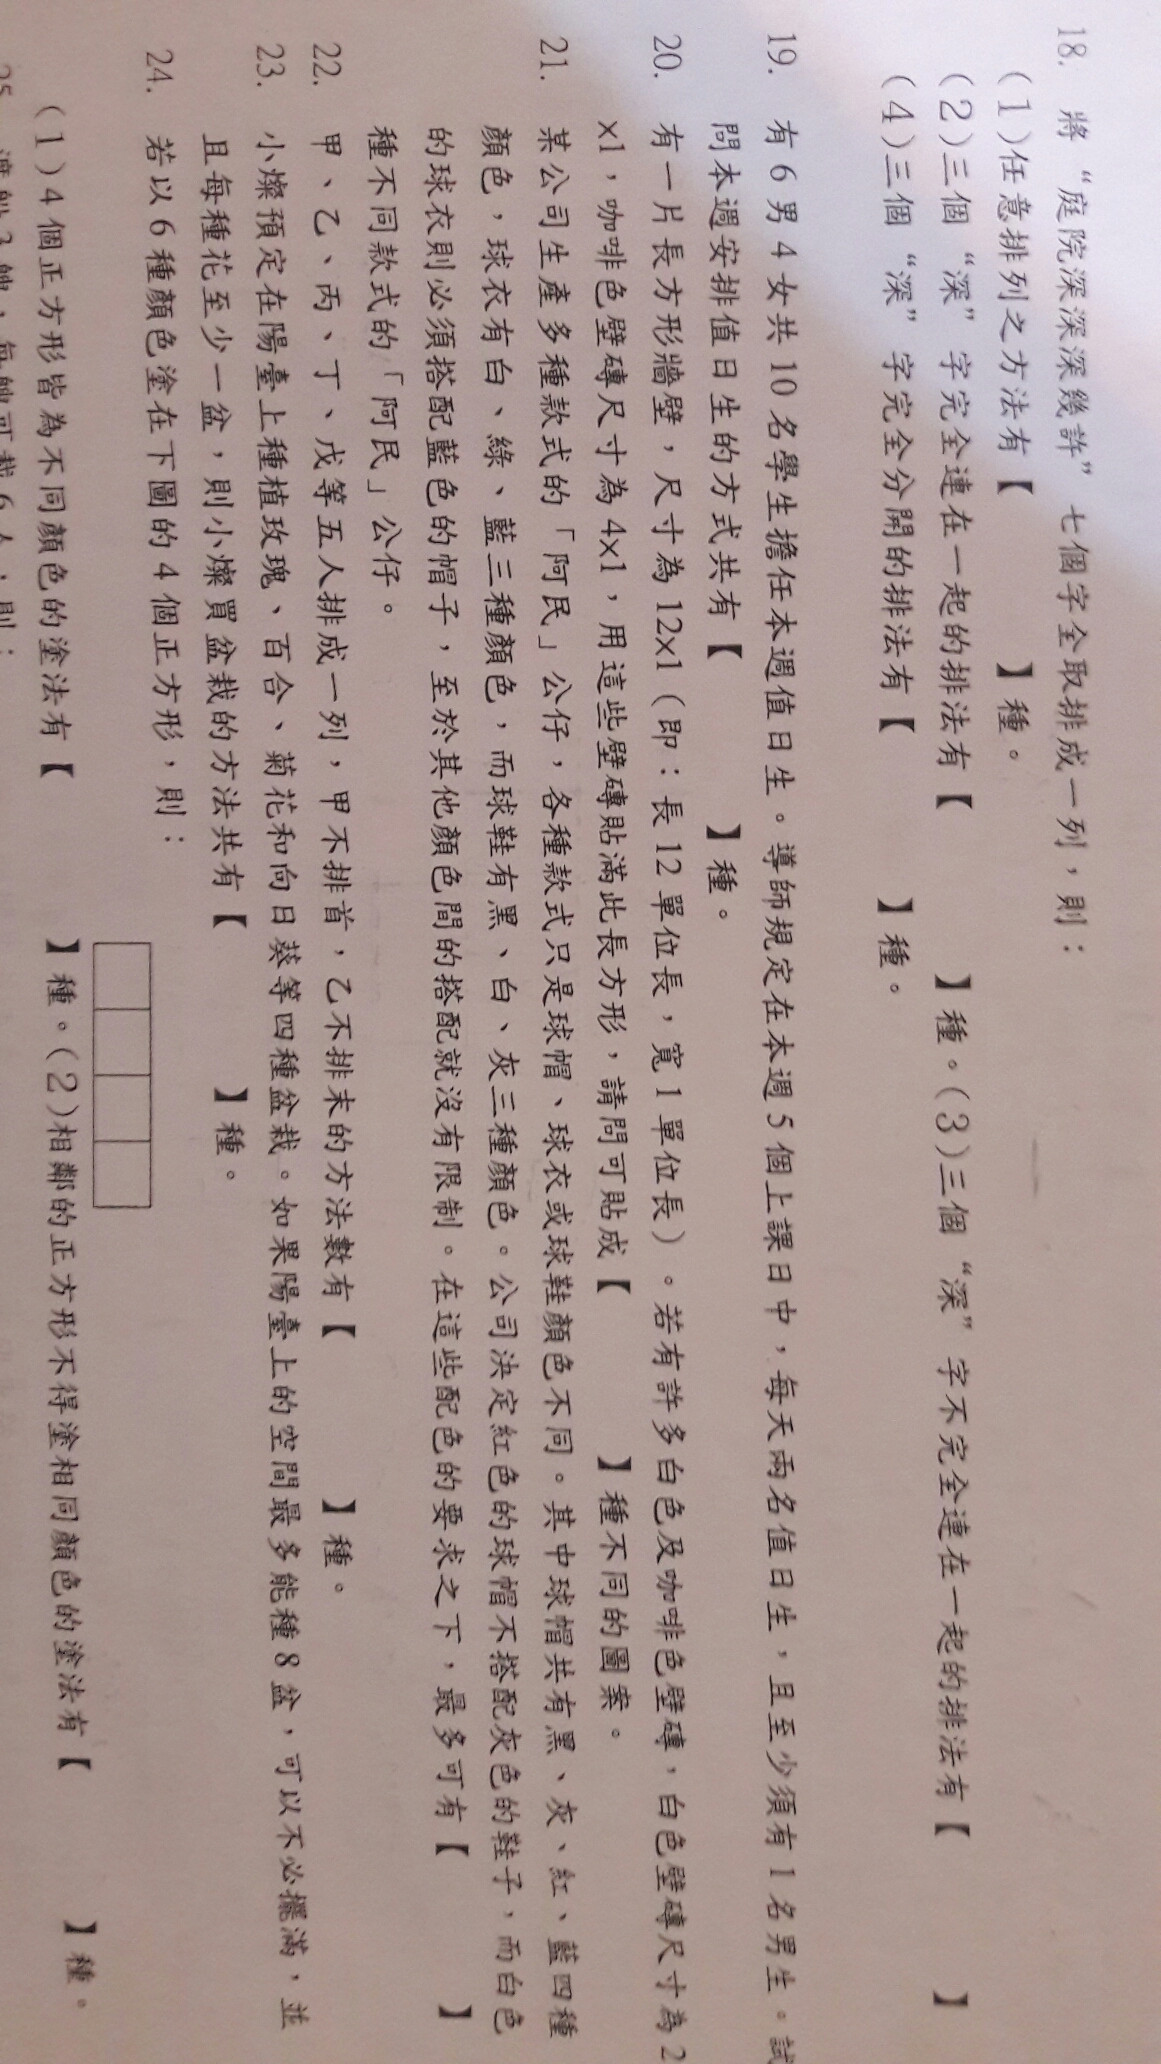 18. 將“庭院深深深幾許”七個字全取排成一列，則：
(1)任意排列之方法有【 】種。
(2)三個“深”字完全連在一起的排法有【 】種。(3)三個“深”字不完全連在一起的排法有【 】
(4)三個“深”字完全分開的排法有【 】種。
19. 有6男4女共10名學生擔任本週值日生。導師規定在本週5個上課日中，每天兩名值日生，且至少須有1名男生。試
問本週安排值日生的方式共有【 】種。
20. 有一片長方形牆壁，尺寸為12x1（即：長12單位長，寬1單位長）。若有許多白色及咖啡色壁磚，白色壁磚尺寸為2
x1，咖啡色壁磚尺寸為4x1，用這些壁磚貼滿此長方形，請問可貼成【 】種不同的圖案。
21. 某公司生產多種款式的「阿民」公仔，各種款式只是球帽、球衣或球鞋顏色不同。其中球帽共有黑、灰、紅、藍四種
顏色，球衣有白、綠、藍三種顏色，而球鞋有黑、白、灰三種顏色。公司決定紅色的球帽不搭配灰色的鞋子，而白色
的球衣則必須搭配藍色的帽子，至於其他顏色間的搭配就沒有限制。在這些配色的要求之下，最多可有【 】
種不同款式的「阿民」公仔。
22. 甲、乙、丙、丁、戊等五人排成一列，甲不排首，乙不排末的方法數有【 】種。
23. 小燦預定在陽臺上種植玫瑰、百合、菊花和向日葵等四種盆栽。如果陽臺上的空間最多能種8盆，可以不必擺滿，並
且每種花至少一盆，則小燦買盆栽的方法共有【 】種。
24. 若以6種顏色塗在下圖的4個正方形，則：
(1)4個正方形皆為不同顏色的塗法有【 】種。(2)相鄰的正方形不得塗相同顏色的塗法有【 】種。